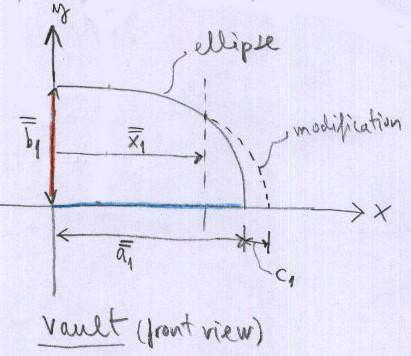 y
ellipse
b̿₁
x̿₁
modification
X
a̿₁
C₁
vault (front view)